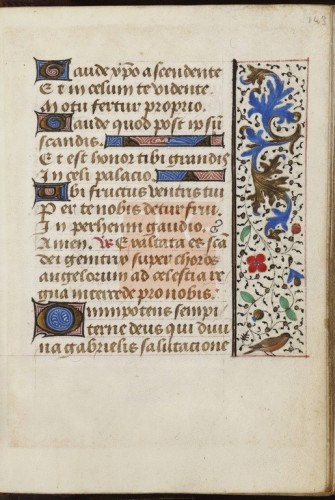 148
Gaude xpo ascendente
Et in celum te vidente.
Motu fertur proprio.
Gaude quod post ipsū
scandis.
Et est honor tibi grandis
In celi palacio.
Ubi fructus ventris tui
Per te nobis detur frui.
In perhenni gaudio.
Amen. Vs Exaltata es scā
dei genitrix super choros
angelorum ad celestia re
gna intercede pro nobis.
Omnipotens sempi
terne deus qui diui
na gabrielis salutacione